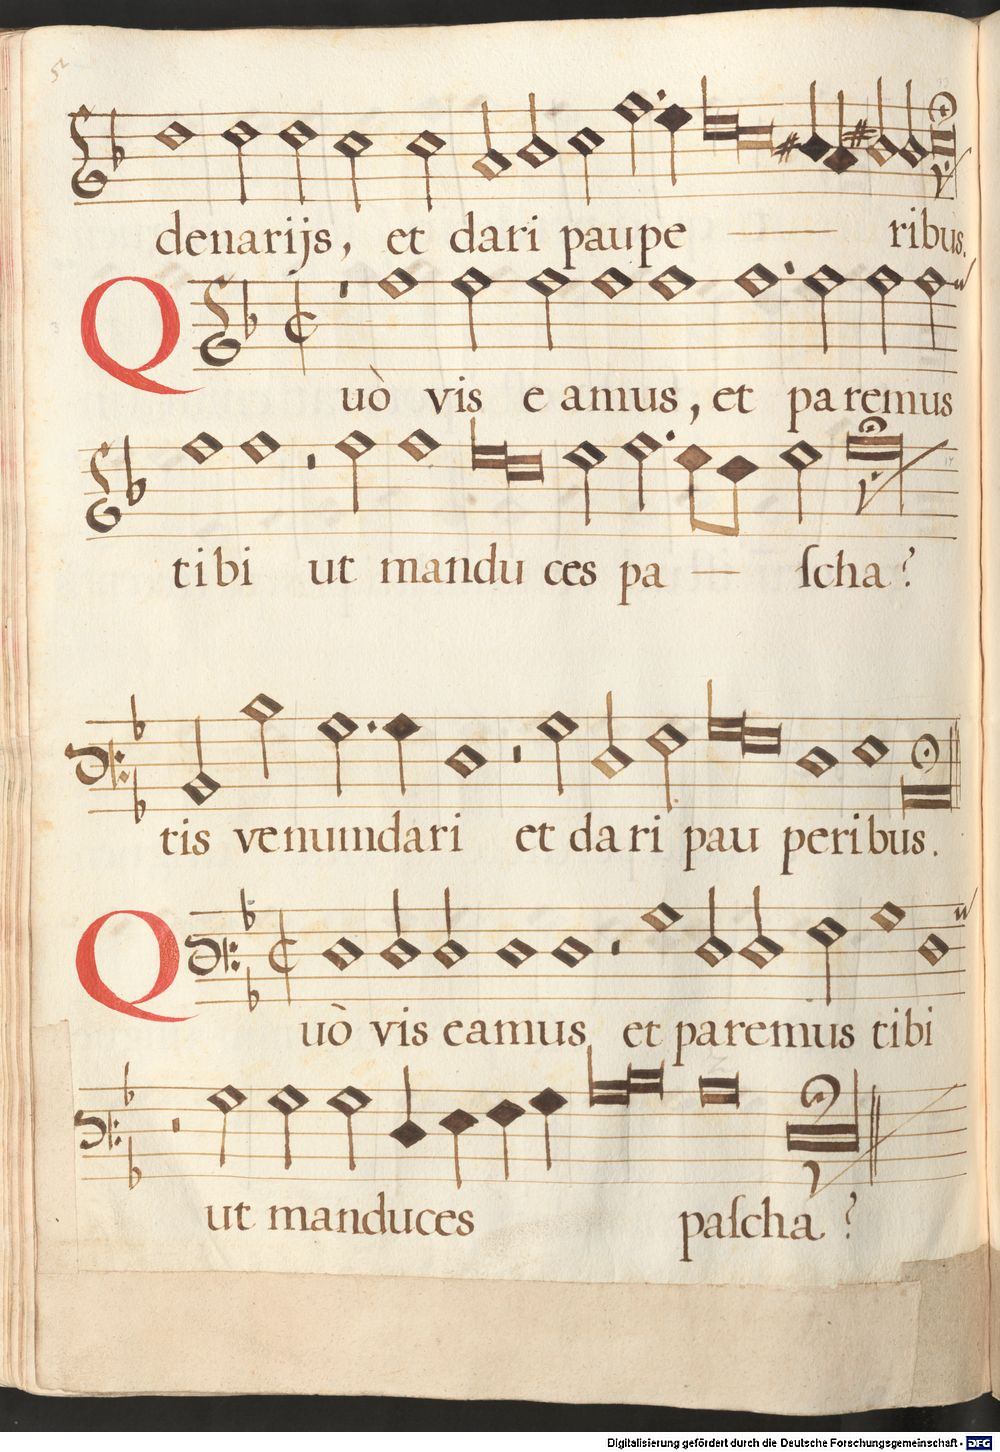 52
denarijs, et dari paupe ribus.
Quò vis eamus, et paremus
tibi ut manduces pa ſcha?
tis venumdari et dari pauperibus.
Quò vis eamus et paremus tibi
ut manduces paſcha?
Digitalisierung gefördert durch die Deutsche Forschungsgemeinschaft - DFG